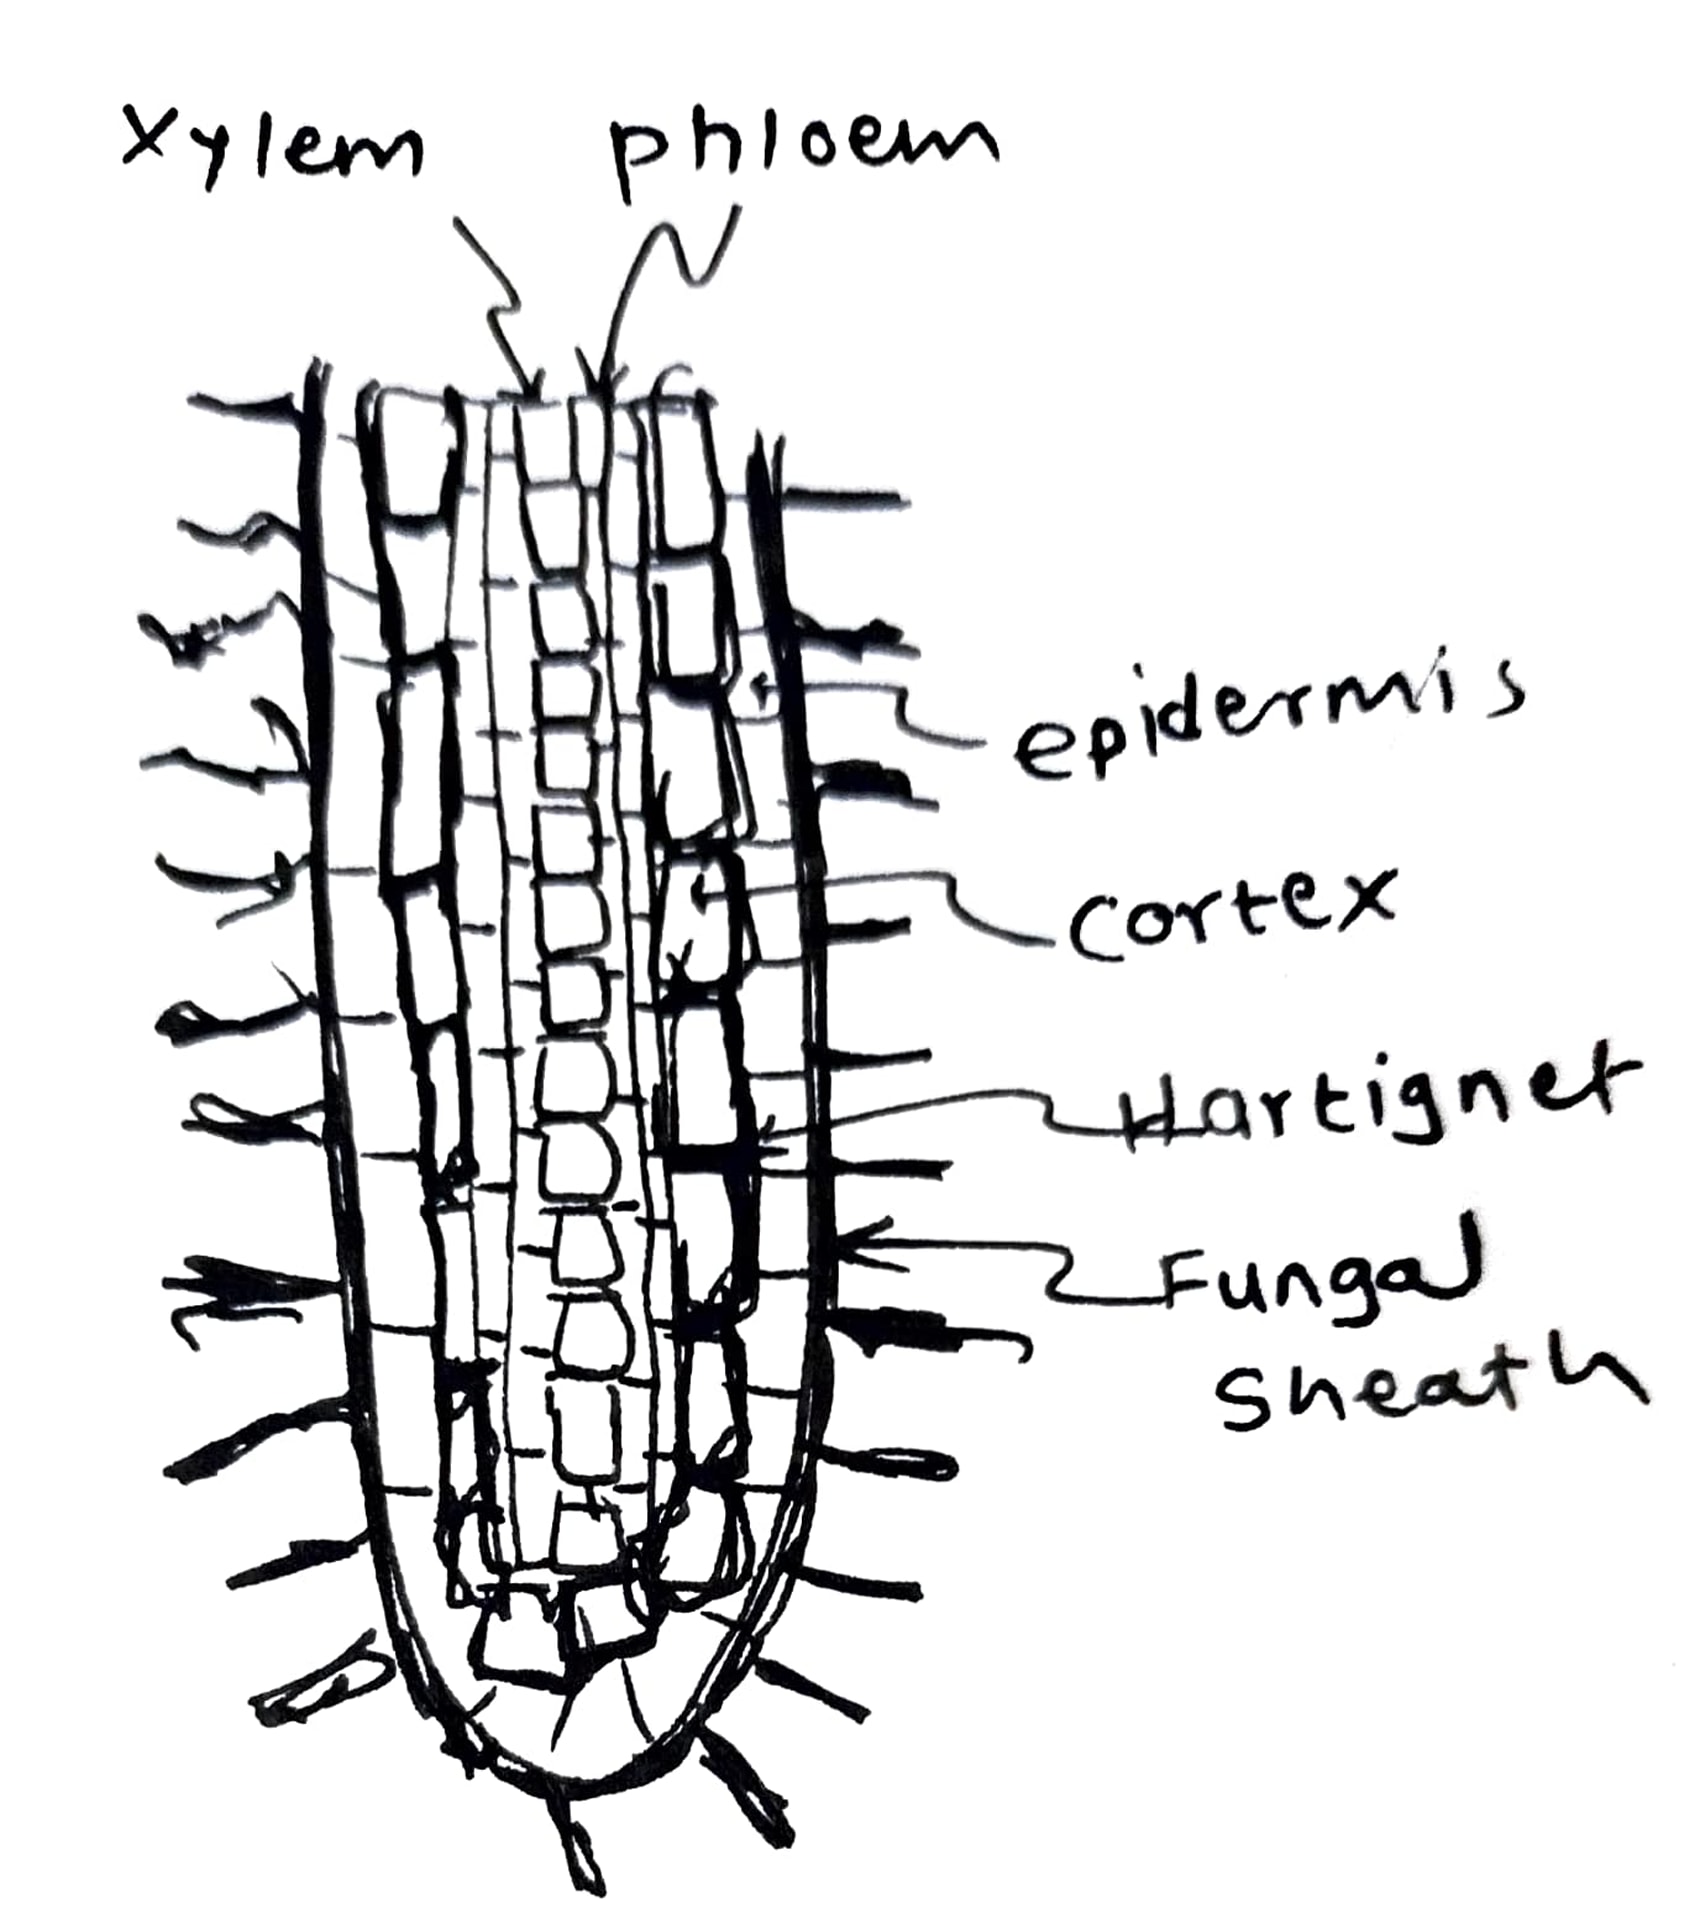 Xylem phloem
epidermis
cortex
Hartignet
Fungal
sheath